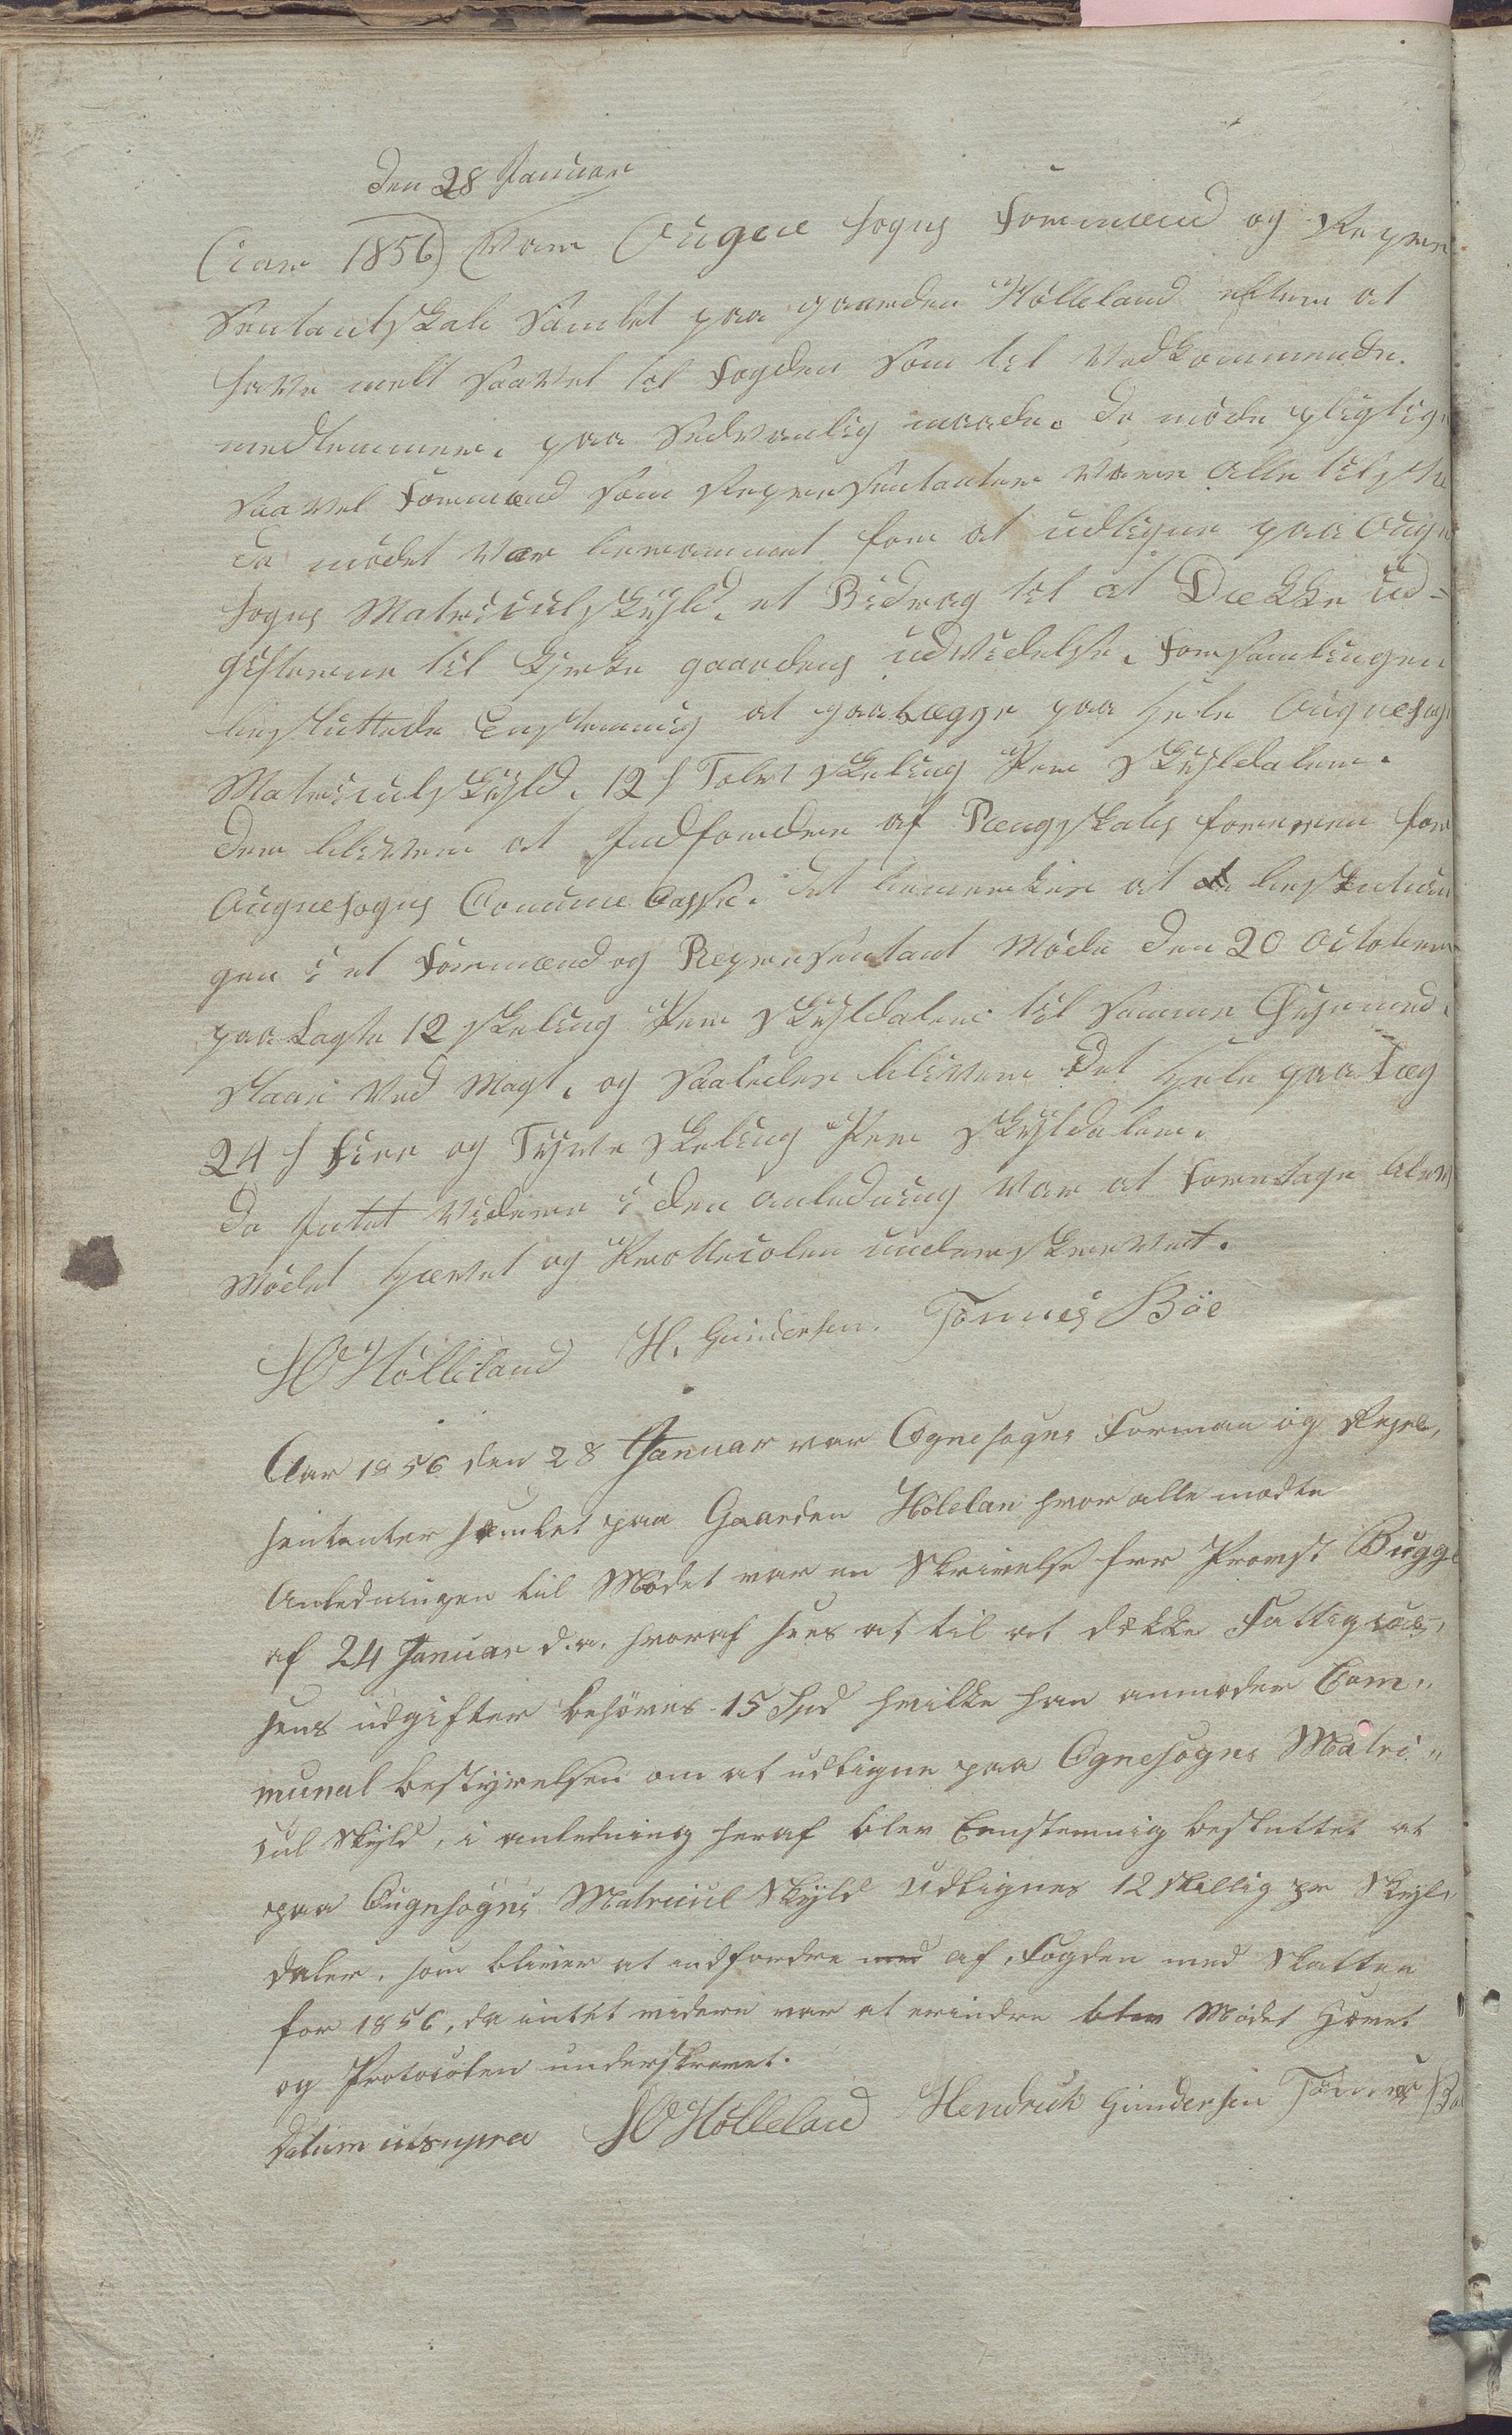 den 28 Januar
Aar 1856 Var Augne sogns Formænd og Repre
sentantskab samlet paa gaarden Hölleland efter at
have melt saavel til Fogden som til Vedkommende
medlemmer, paa sedvanlig maade. De möde pligtige
saavel Formænd som Representanter Vare alle tilstæ
da mödet Var berammet for at udligne paa Augne
sogns Matriculskyld, et Bidrag til at Dække ud-
gifterne til kirke gaardens udvidelse, Forsamlingen
besluttede Enstemmig at paalægge paa hele Augnesogns
Matriculskyld, 12 s Tolv skeling Per Skylddaler.
der bliver at Indfordre af Pengeskats for
Augnesogns Comune Casse. det bemerkes at de
gen i et Formænd og Representant Möde den 20 October
paa Lagte 12 skeling Per Skylddaler til samme
staar Ved Magt, og saaledes bliver det hele paalæg
24 s Fire og Tyve skeling Per Skylddaler.
Da Intet Videre i den anledning Var at Foretage blev
Mödet hævet og Prottecolen underskrevet.
HO Hölleland H. Gundersen. Tönnes Böe
Aar 1856 den 28 Januar var Ognesogns Forman og Repre,
sentanter samlet paa Gaarden Hölelan hvor alle mödte
Anledningen til Mödet var en Skrivelse fra Provst Bugge
af 24 Januar d.a. hvoraf sees at til at dække Fattigcas,
sens udgifter behöves 15 Spd hvilke han anmoder Com,,
munal bestyrelsen om at udligne paa Ognesogns Matri,,
cul Skyld, i anledning heraf blev Eenstemmig besluttet at
paa Augnesogns Matricul Skyld Udlignes 12 skillig pr Skyld
daler, som bliver at indfordre med af Fogden med Skatten
for 1856, da intet videre var at erindre blev Mödet Hævet
og Protocolen underskrevet.
Datum utsupra HO Hölleland Hendrick Gundersen Tönnes Bö